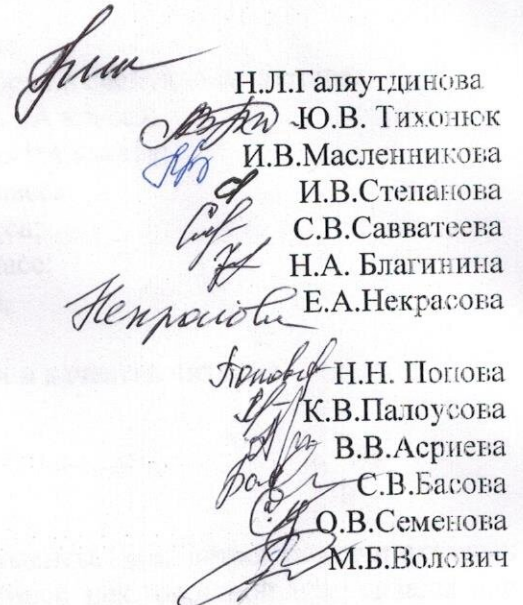 Н.Л.Галяутдинова
Ю.В. Тихонюк
И.В.Масленникова
И.В.Степанова
С.В.Савватеева
Н.А. Благинина
Некрасова Е.А.Некрасова
Попова Н.Н. Попова
К.В.Палоусова
В.В.Асриева
С.В.Басова
О.В.Семенова
М.Б.Волович